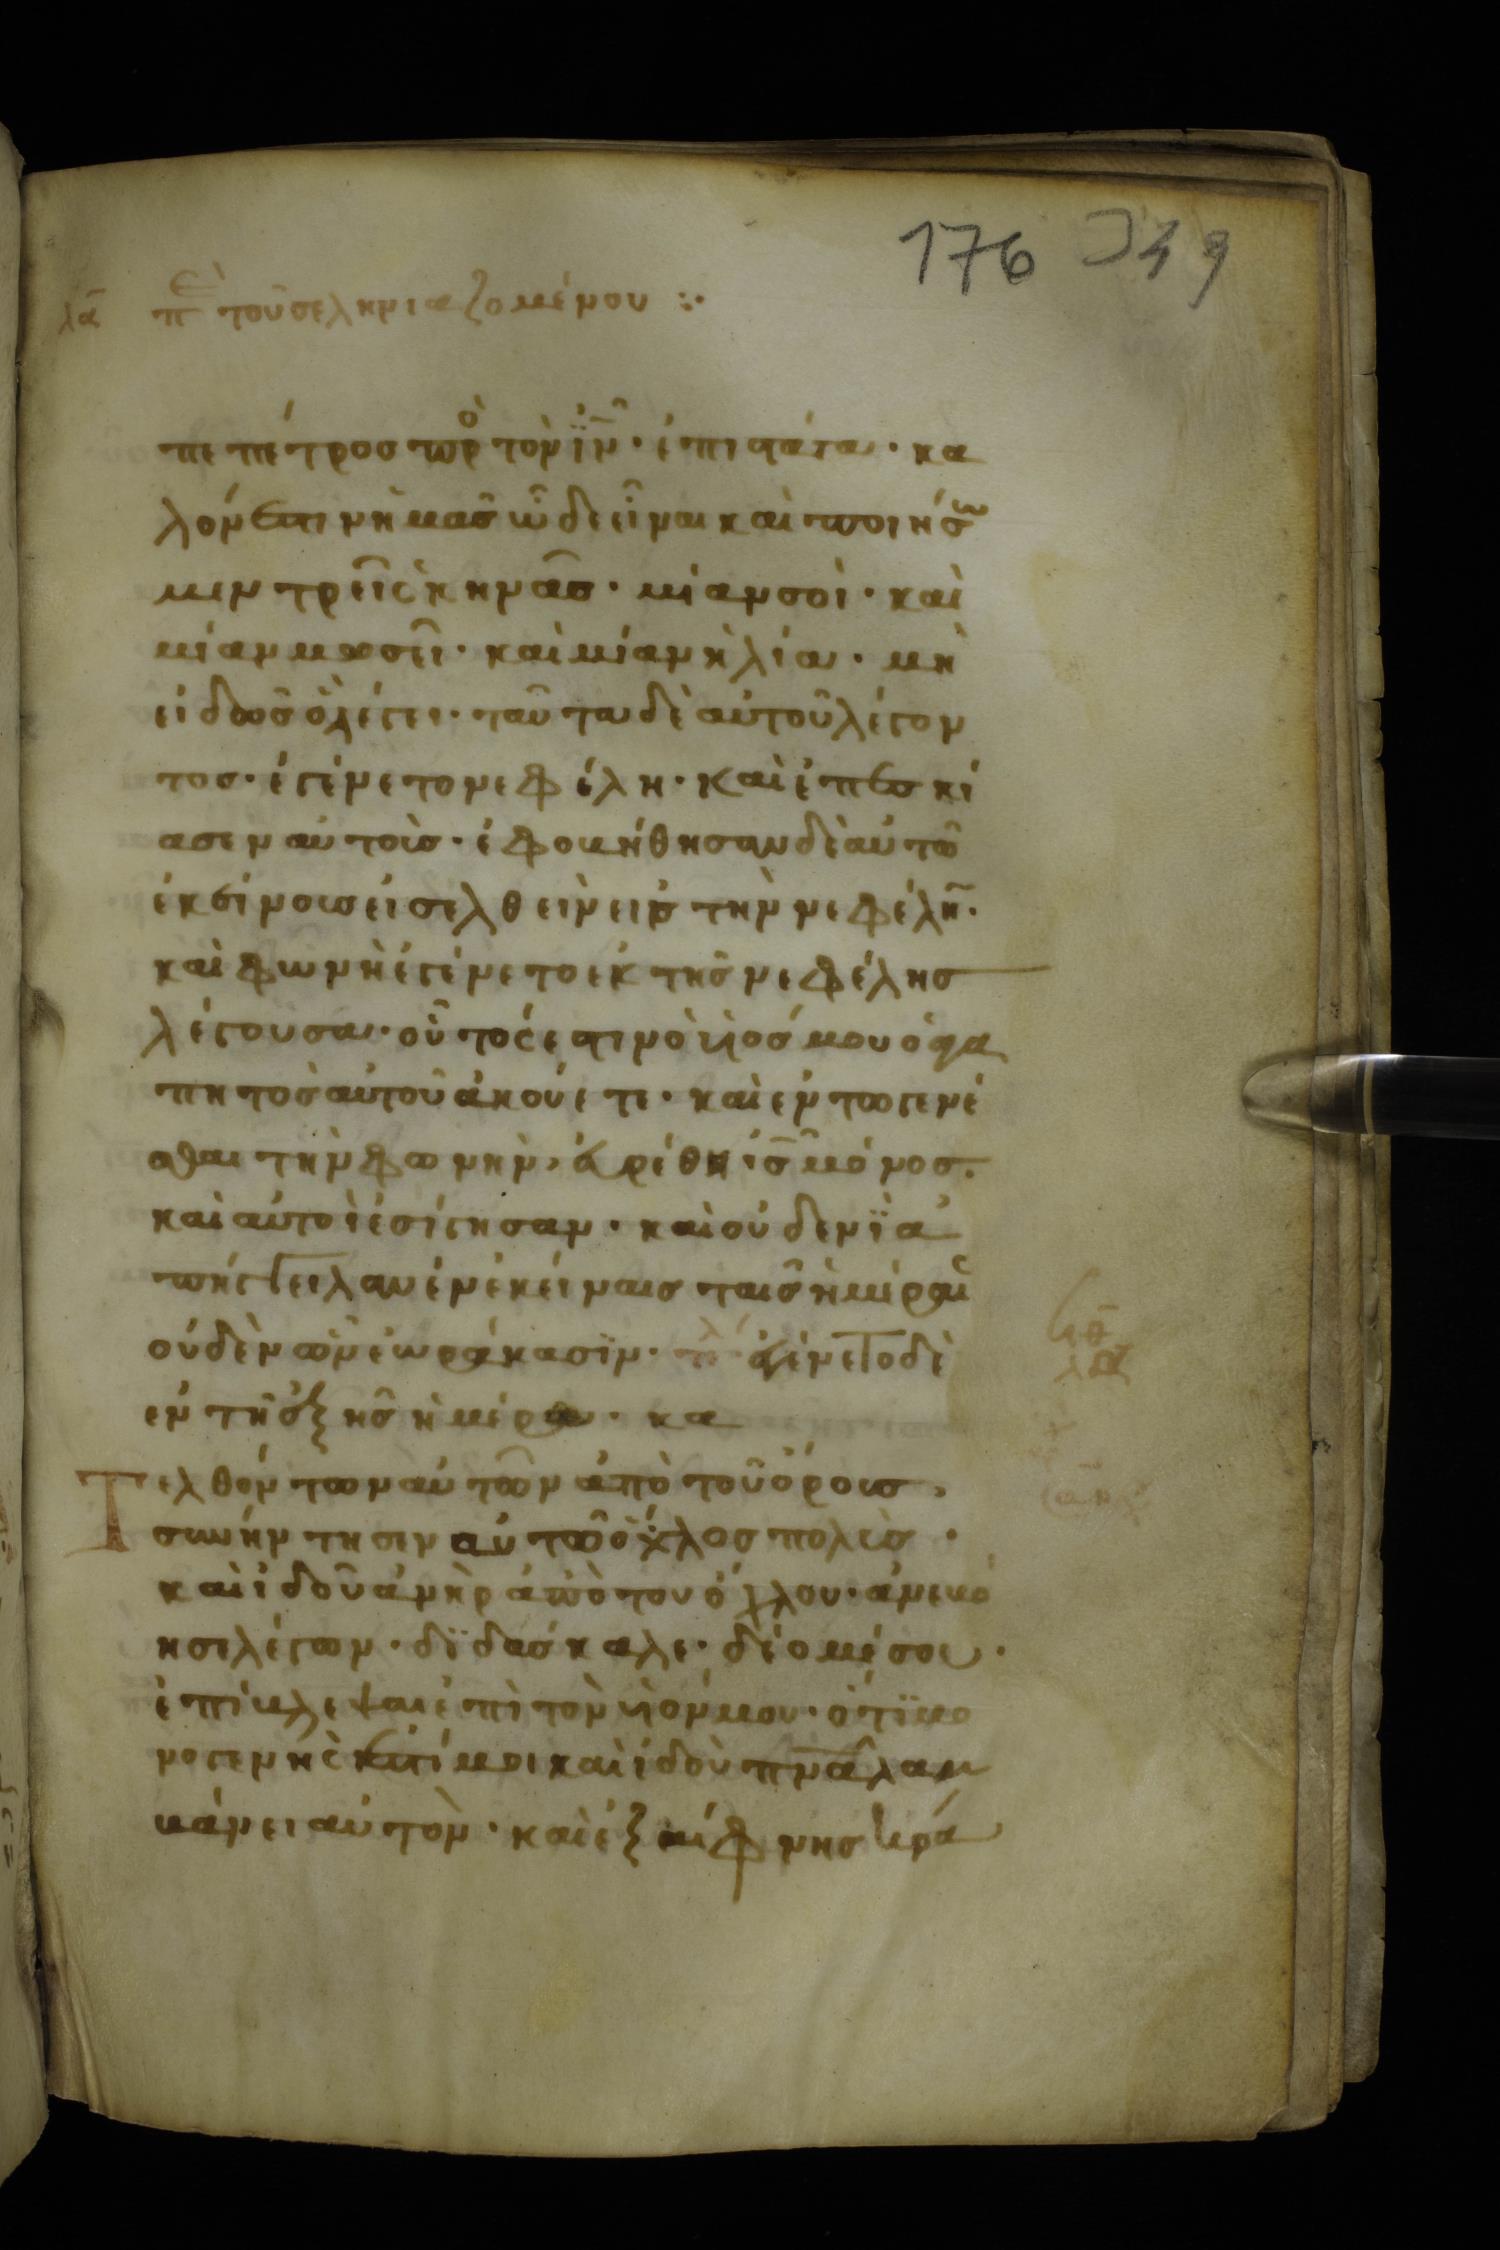 176 349
λα πε τοῦ σεληνιαζομένου :·
πε πέτρος πρὸ τὸν ϊν · ἐπιστάτα · κα
λόν ἐστιν ἡμᾶς ὧδε εἶναι καὶ ποιήσω
μεν τρεῖς σκηνᾶς · μίαν σοὶ · καὶ
μίαν μωσεῖ · καὶ μίαν ἡλία · μὴ
εἰδὼς ὃ λέγει · ταῦτα δὲ αὐτοῦ λέγον
τος · ἐγένετο νεφέλη · καὶ ἐπεσκί
ασεν αὐτοὺς · ἐφοβήθησαν δὲ αὐτῶ
ἐκείνους εἰσελθεῖν εἰς τὴν νεφέλη ·
καὶ φωνὴ ἐγένετο ἐκ τῆς νεφέλης
λέγουσα · οὗτός ἐστιν ὁ υἱός μου ὁ ἀγα
πητὸς αὐτοῦ ἀκούετε · καὶ ἐν τῶ γενέ
σθαι τὴν φωνὴν, εὑρέθη ις μόνος ·
καὶ αὐτοὶ ἐσίγησαν · καὶ οὐδενὶ ἀ
πήγγειλαν ἐν ἐκείναις ταῖς ἡμέραι
οὐδὲν ὧν ἑωράκασιν · ἐγένετο δὲ
ἐν τῆ ἑξῆς ἡμέρα · κα
Τελθόντων αὐτῶν ἀπὸ τοῦ ὄρους,
συνήντησεν αὐτῶ ὄχλος πολὺς ·
καὶ ἰδοῦ ἀνὴρ ἀπὸ του ὄχλου · ἀνεβό
ησε λέγων · διδάσκαλε · δέομέ σου ·
ἐπίβλεψαι ἐπὶ τὸν υἱόν μου · ὅτι μο
νογενής ἐστί μοι καὶ ἰδοὺ πνα λαμ
βάνει αὐτὸν · καὶ ἐξαίφνης κρά